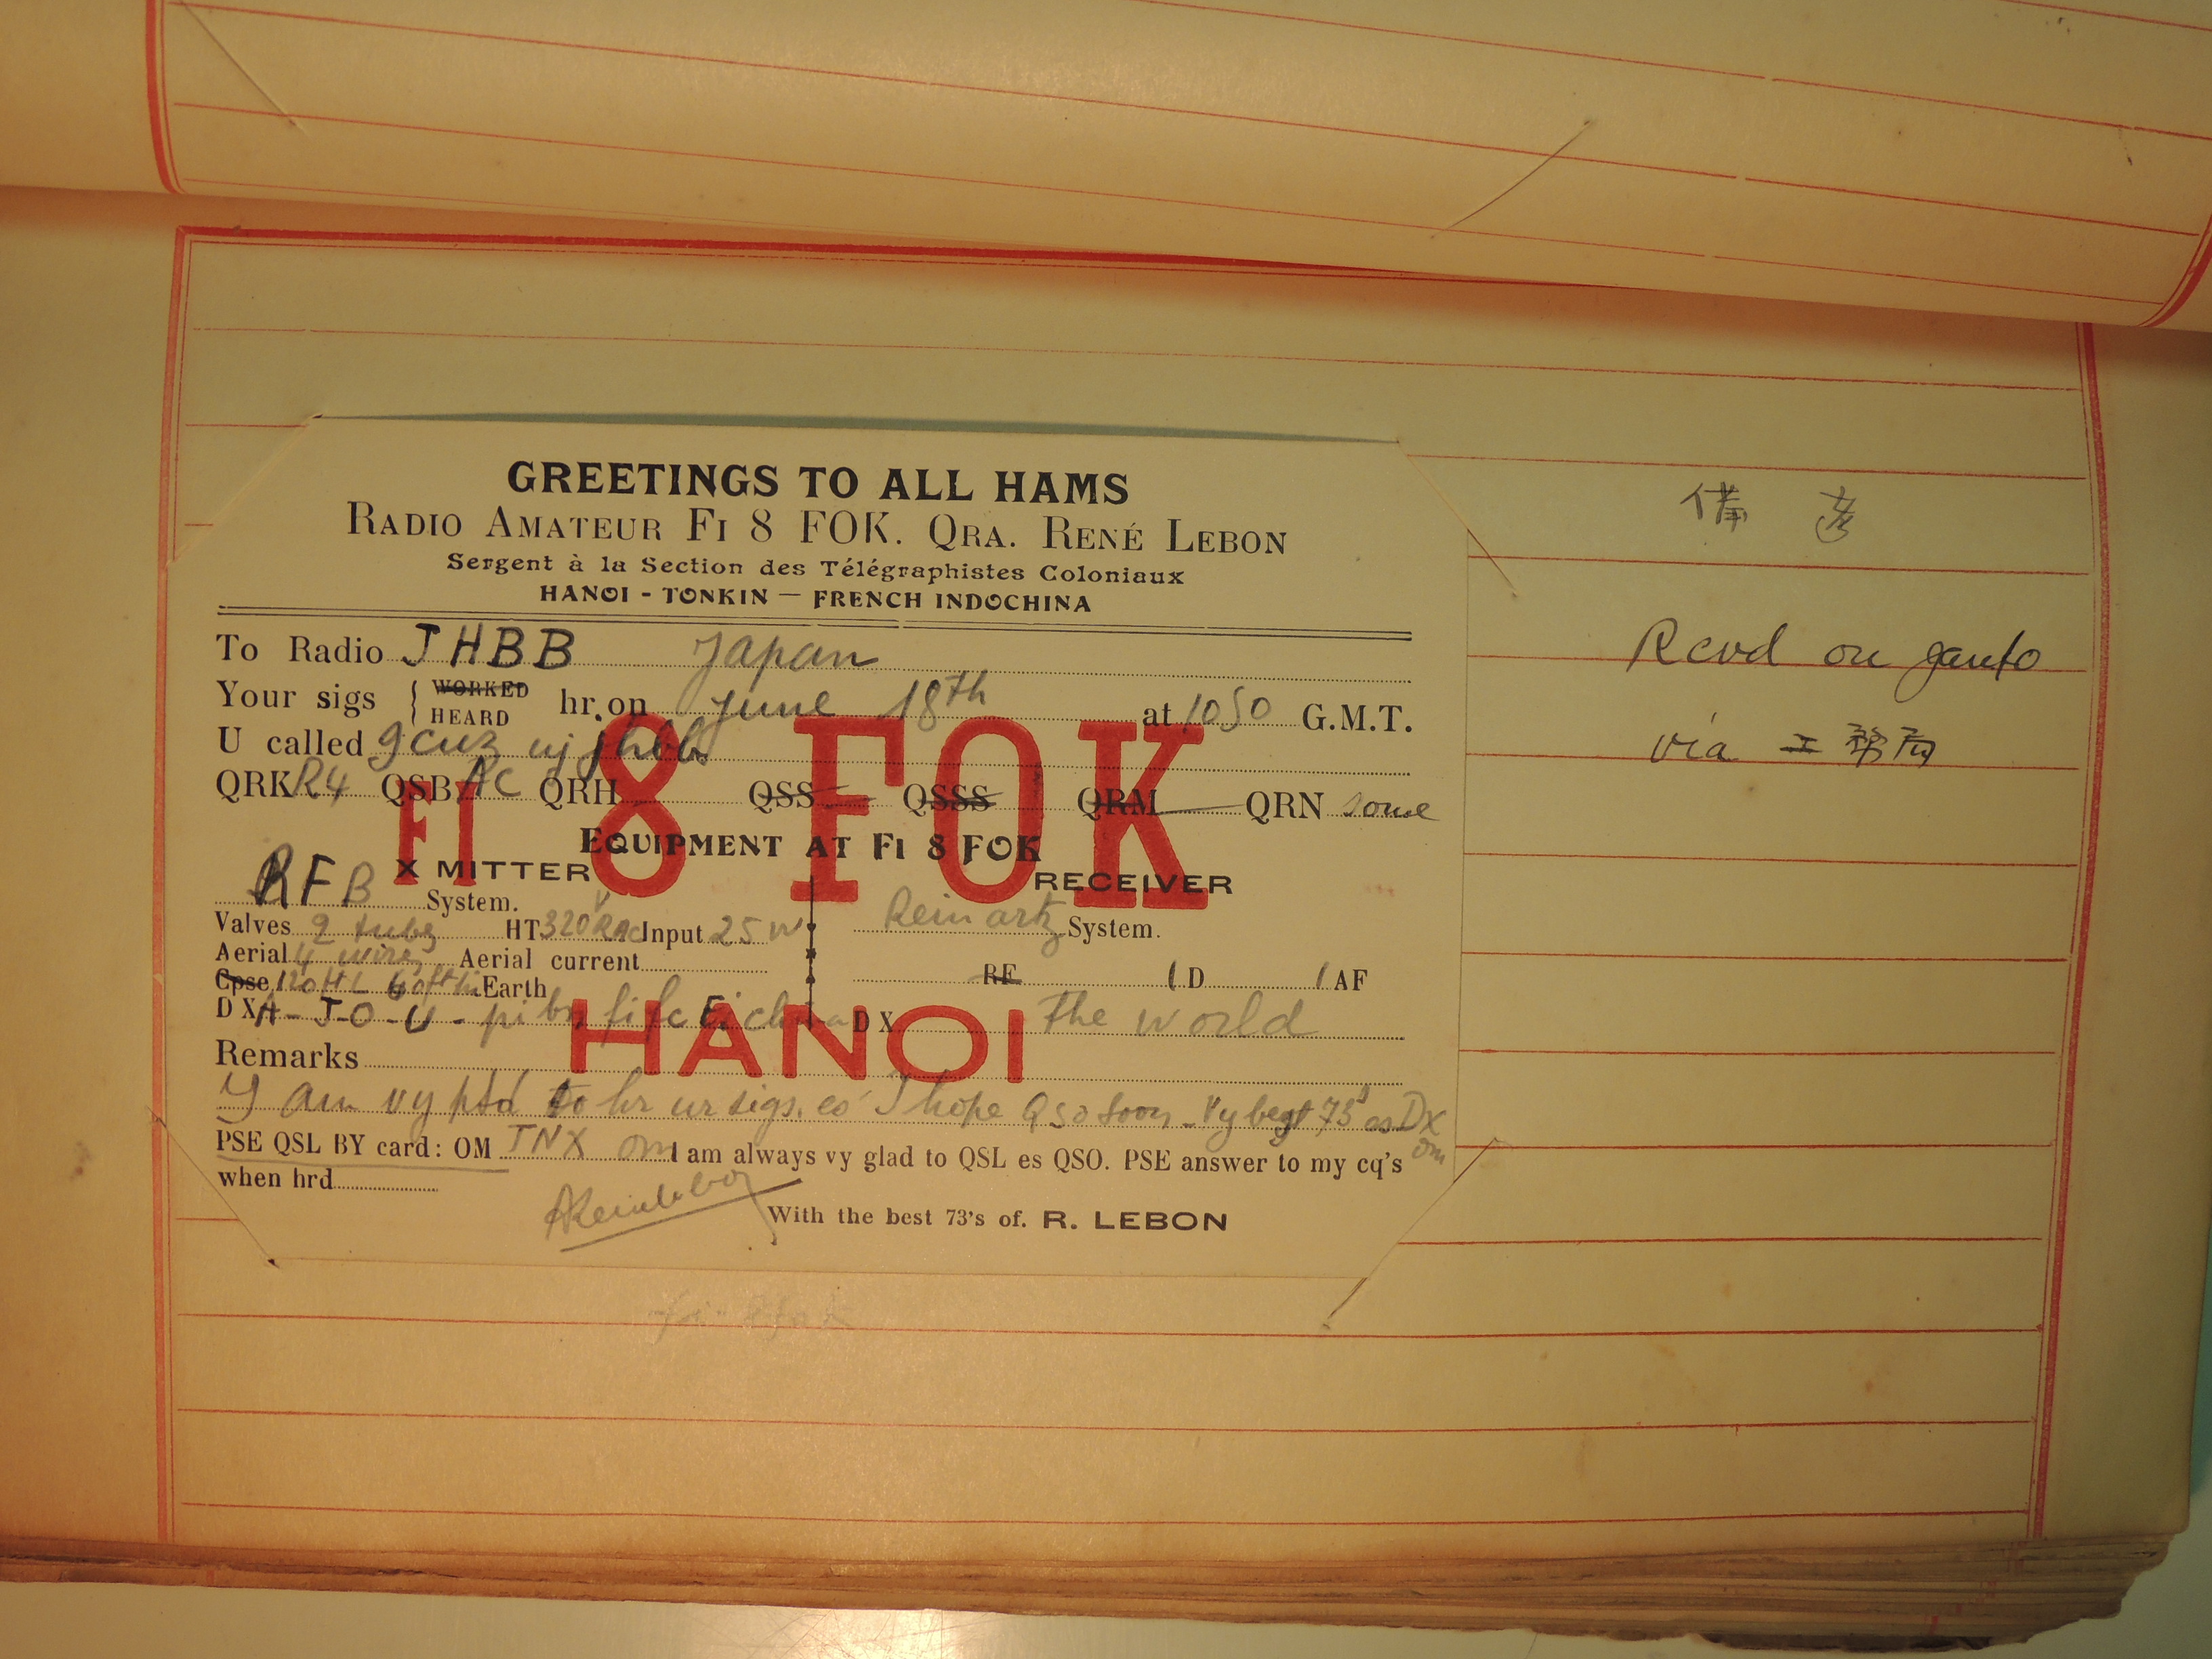 GREETINGS TO ALL HAMS
RADIO AMATEUR FI 8 FOK. QRA. RENÉ LEBON
Sergent à la Section des Télégraphistes Coloniaux
HANOI - TONKIN — FRENCH INDOCHINA
To Radio JHBB Japan
Your sigs { WORKED HEARD hr. on June 18th at 1050 G.M.T.
U called 9cuz uj jhbb
QRK R4 QSB AC QRH QSS QSSS QRM QRN some
FI 8 FOK
EQUIPMENT AT FI 8 FOK
X MITTER RECEIVER
RFB System.
Reinartz System.
Valves 2 tubes HT 320 V RAC Input 25 W
Aerial 4 wires Aerial current
RF 1 D 1 AF
Cpse Earth
DX A-J-O-U-pi DX The world
HANOI
Remarks
I am vy psd to hr ur sigs. es I hope QSO soon - Vy best 73s es DX om
PSE QSL BY card: OM TNX om I am always vy glad to QSL es QSO. PSE answer to my cq's
when hrd
With the best 73's of. R. LEBON
備考
Rcvd on
via 工務局